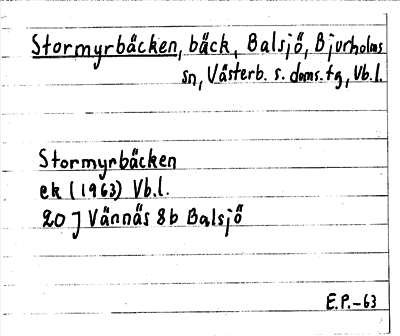 Stormyrbäcken, bäck, Balsjö, Bjurholms
sn, Västerb. s. doms. tg, Vb.l.
Stormyrbäcken
ek (1963) Vb.l.
20 J Vännäs 8b Balsjö
E.P.-63